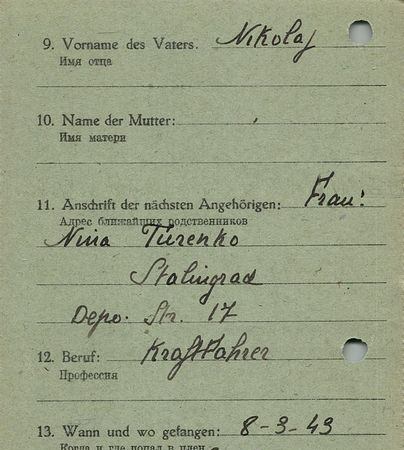 9. Vorname des Vaters. Nikolaj
Имя отца
10. Name der Mutter:
Имя матери
11. Anschrift der nächsten Angehörigen: Frau:
Адрес ближайших родственников
Nina Turenko
Stalingrad
Depo. Str. 17
12. Beruf: Kraftfahrer
Профессия
13. Wann und wo gefangen: 8-3-43
Когда и где попал в плен